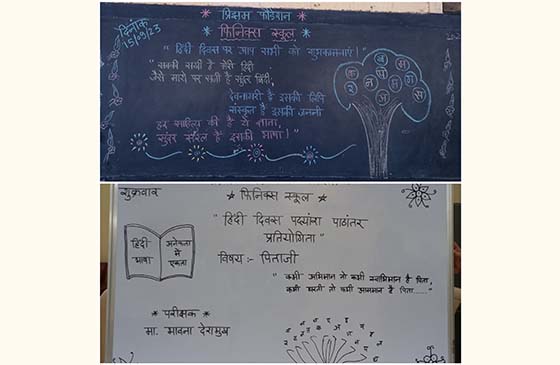 दिनांक
15/09/23
* प्रिझम फौंडेशन *
* फिनिक्स स्कूल *
" हिंदी दिवस पर आप सभी को शुभकामनाएं।"
" सबकी सखी है मेरी हिंदी
जैसे माथे पर सजती है सुंदर बिंदी,
देवनागरी है इसकी लिपि
संस्कृत है इसकी जननी
हर साहित्य की है ये ज्ञाता,
सुंदर सरल है इसकी भाषा।"
शुक्रवार
* फिनिक्स स्कूल *
" हिंदी दिवस पद्यांश पाठांतर
प्रतियोगिता "
विषय :- पिताजी
हिंदी
भाषा
अनेकता
में
एकता
" कभी अभिमान तो कभी स्वाभिमान है पिता,
कभी धरती तो कभी आसमान है पिता....."
* परीक्षक *
मा. भावना देशमुख